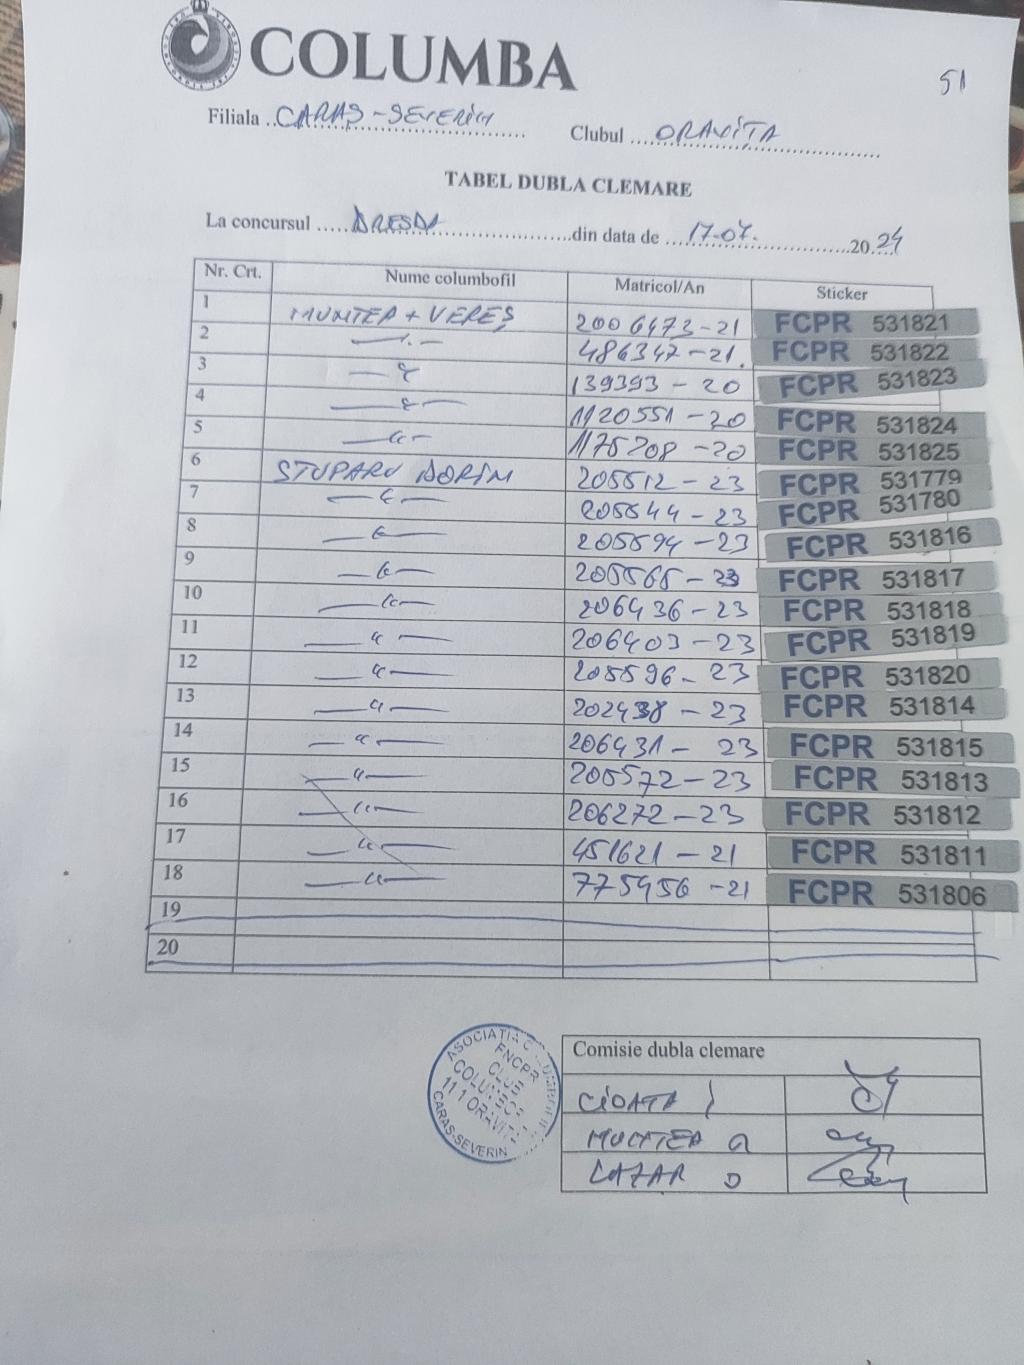 COLUMBA
51
Filiala ..CARAȘ-SEVERIN.......... Clubul ...ORAVIȚA..........
TABEL DUBLA CLEMARE
La concursul .....DRESDA..........din data de ...17.07...........20.24
Nr. Crt. Nume columbofil Matricol/An Sticker
1 MUNTEA + VEREȘ 2006473-21 FCPR 531821
2 —〃— 486347-21. FCPR 531822
3 —〃 139393-20 FCPR 531823
4 —〃— 1120551-20 FCPR 531824
5 —〃— 1175208-20 FCPR 531825
6 STUPARU DORIN 205512-23 FCPR 531779
7 —〃— 205544-23 FCPR 531780
8 —〃— 205594-23 FCPR 531816
9 —〃— 205565-23 FCPR 531817
10 —〃— 206436-23 FCPR 531818
11 —〃— 206403-23 FCPR 531819
12 —〃— 205596-23 FCPR 531820
13 —〃— 202438-23 FCPR 531814
14 —〃— 206431-23 FCPR 531815
15 —〃— 205572-23 FCPR 531813
16 —〃— 206272-23 FCPR 531812
17 —〃— 451621-21 FCPR 531811
18 —〃— 775456-21 FCPR 531806
19
20
Comisie dubla clemare
CIOATA I
MUNTEA G
LAZAR D
FNCPR
CLUB
COLUMBOF
111 ORAVITA
CARAS-SEVERIN